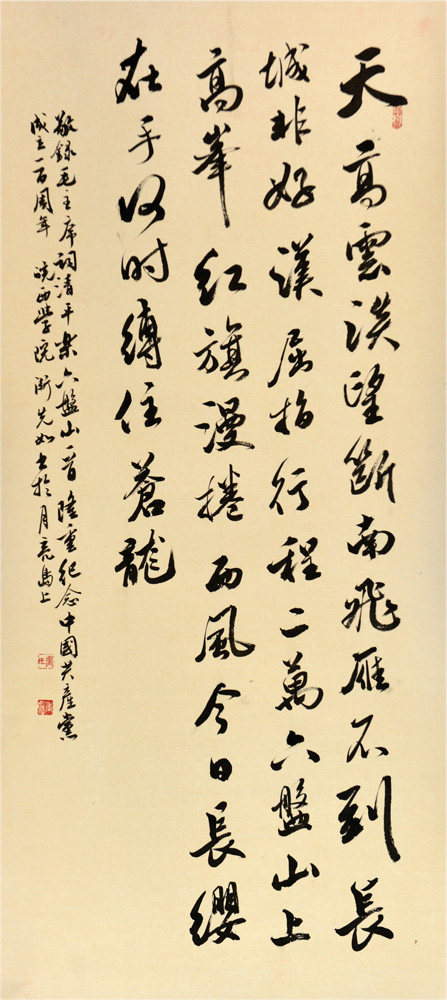 天高雲淡望斷南飛雁不到長
城非好漢屈指行程二萬六盤山上
高峯紅旗漫捲西風今日長纓
在手何时縛住蒼龍
敬録毛主席詞清平樂六盤山一首隆重纪念中國共產黨
成立一百周年 皖西学院 先如书於月亮岛上